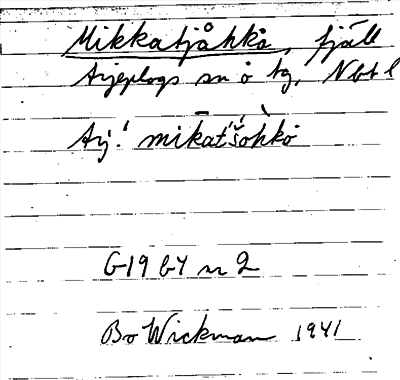 Mikkatjåhkå, fjäll
Arjeplogs sn o tg, Nbt l
Arj. mikat́šohkō
G19 b4 n 2
Bo Wickman 1941